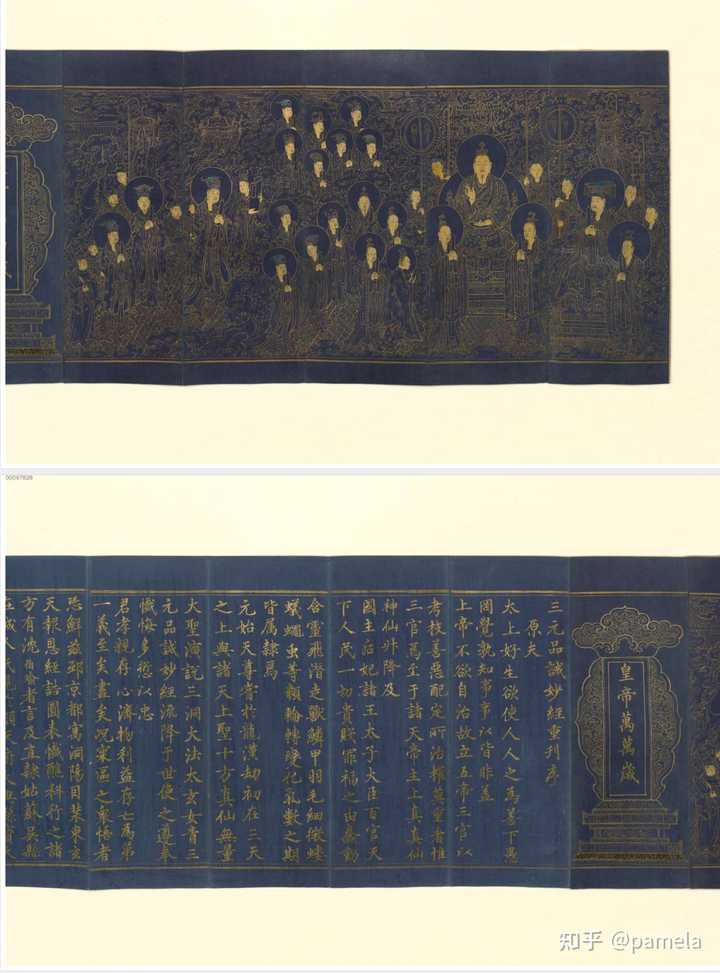 皇帝萬萬歲
三元品誡妙經重刊序
原夫
太上好生欲使人人之為善下愚
罔覺孰知事事以皆非蓋
上帝不欲自治故立五帝三官以
考校善惡配定所治權莫重者惟
三官焉至于諸天帝主上真真仙
神仙升降及
國主后妃諸王太子大臣百官天
下人民一切貴賤罪福之由蠢動
含靈飛潛走獸鱗甲羽毛細微螻
蟻蠅虫等類輪轉變化氣數之期
皆屬隸焉
元始天尊嘗於龍漢劫初在三天
之上與諸天上聖十方真仙無量
大聖演說三洞大法太玄女青三
元品誡妙經流降于世使之遵奉
懺悔多愆以忠
君孝親存心濟物利益存亡為第
一義至矣盡矣況寰區之眾悟者
恐鮮茲邱京都寓洞陽目東玄
天報恩經誥圓奉懺醮科行之諸
方有沈者言及直隸姑蘇吳縣
知乎 @pamela